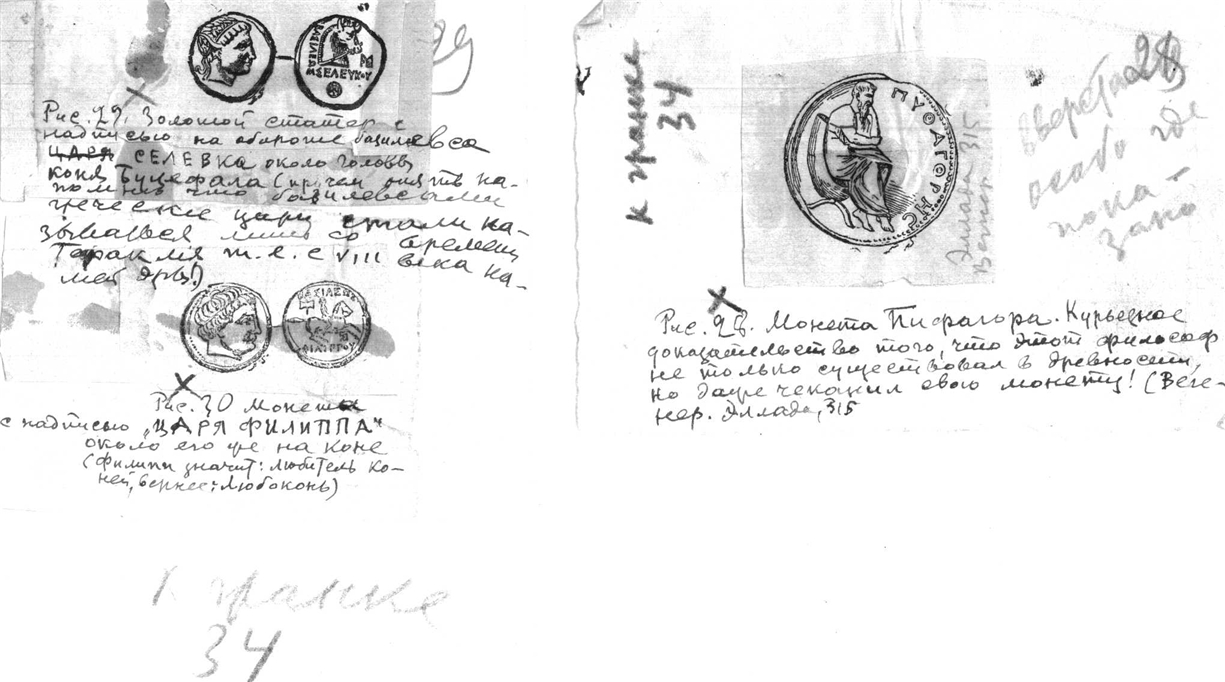 29
ΒΑΣΙΛΕΩΣ
ΣΕΛΕΥΚΟΥ
Рис. 29. Золотой статер с
надписью на обороте базилевса
ЦАРЯ СЕЛЕВКА около головы
коня Буцефала (причем опять на-
помним что базилевсами
греческие цари стали на-
зываться лишь со времени
Гераклия т.е. с VIII века на-
шей эры!)
Рис. 30 Монета
с надписью „ЦАРЯ ФИЛИППА“
около его же на коне
(Филипп значит: любитель ко-
ней, вернее: Любоконь)
К гранке
34
К гранке
34
ΠΥΘΑΓΟΡΗΣ
Эллада 315
Вегенер
28
вверстать
особо где
пока-
зано
Рис. 28. Монета Пифагора. Курьезное
доказательство того, что этот философ
не только существовал в древности,
но даже чеканил свою монету! (Веге-
нер. Эллада, 315